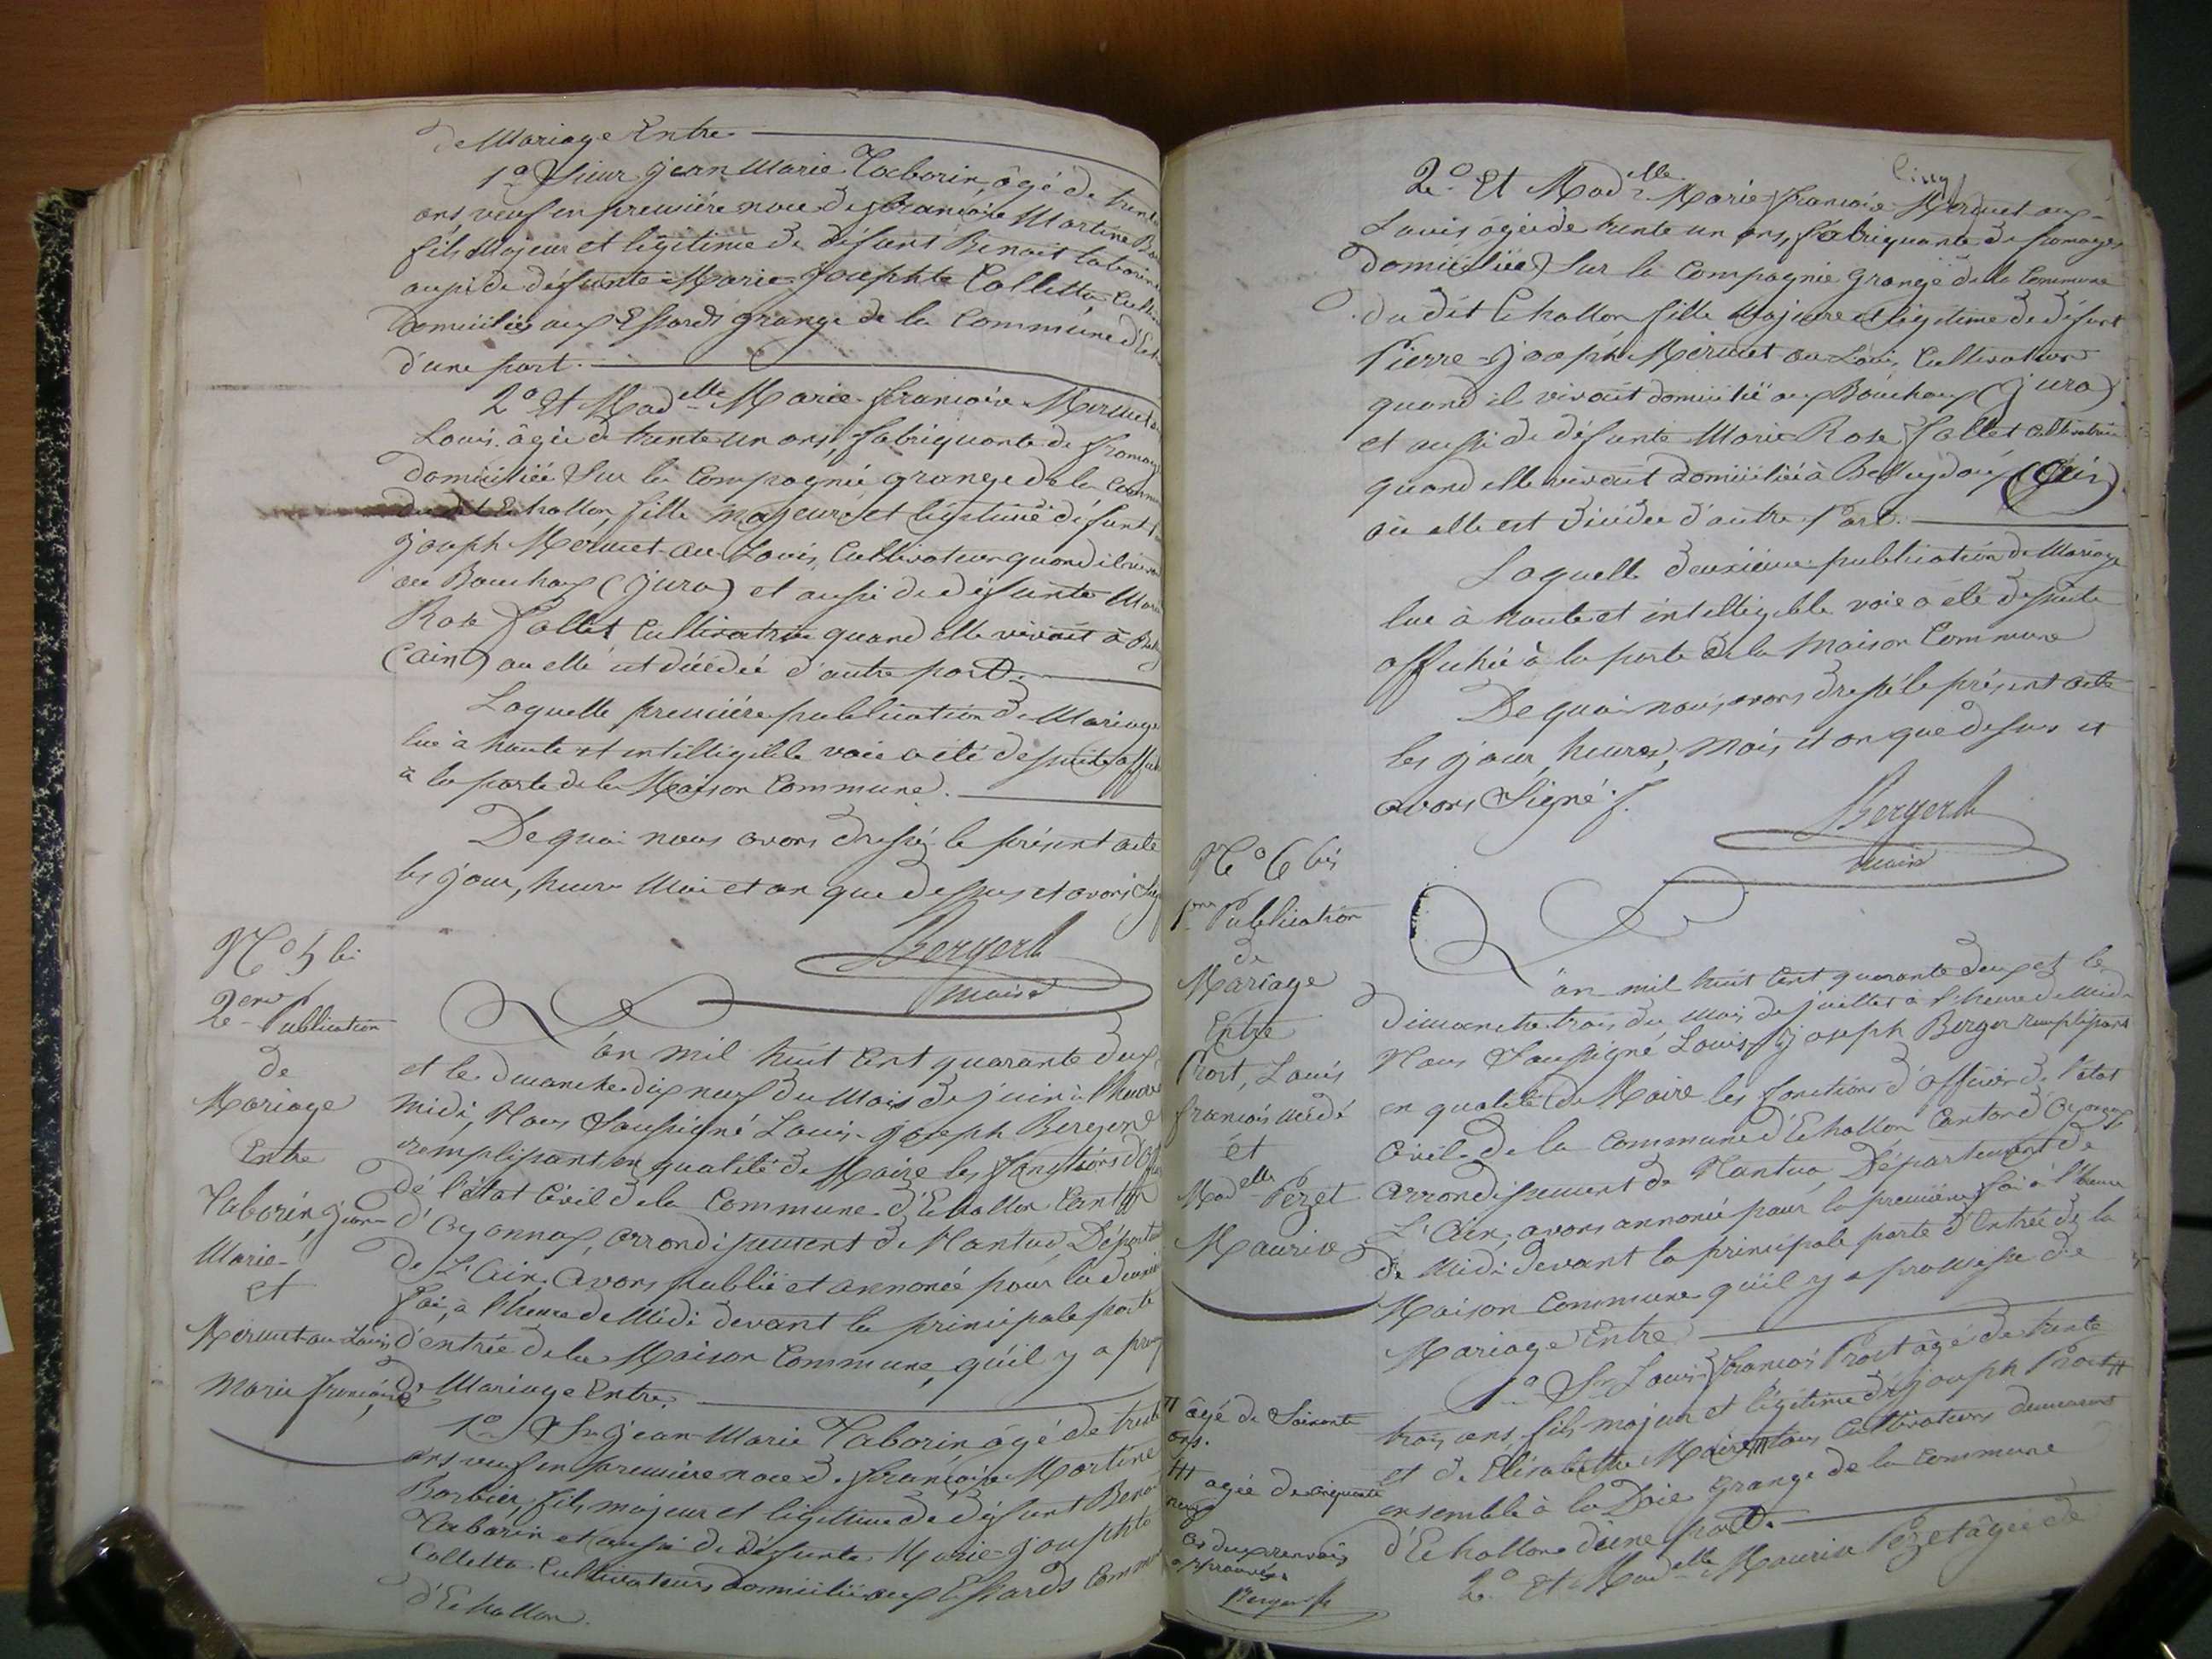 de Mariage Entre
1º Sieur jean Marie Taborin, âgé de trente
ans veuf en première noce de françoise Martine
fils Majeur et légitime de défunt Benoit taborin
aussi de défunte Marie josephte Colletta
domiciliés aux Essards grange de la Commune
d'une part.
2º Et Mad.elle Marie françoise Mermet au
Louis, âgée de trente un ans, fabriquante de fromage
domiciliée Sur la Compagnie grange de la
du dit Echallon, fille majeure et légitime défunt
joseph Mermet au Louis, Cultivateur quand il vivait
au Bouchoux (jura) et aussi de défunte
Rose Jallet Cultivatrice quand elle vivait à
(ain) ou elle est décédée d'autre part.
Laquelle première publication de Mariage
lue à haute et intelligible voie a été de suite
à la porte de la Maison Commune.
De quoi nous avons dressé le présent acte
les jour, heure Mois et an que dessus et avons
Berger
maire
Nº 5 bis
2eme Publication
de
Mariage
Entre
Taborin, jean-
Marie-
et
Mermet au Louis
Marie françoise
L'an mil huit Cent quarante deux
et le dimanche dix neuf du Mois de juin à l'heure
midi, Nous Soussigné Louis-joseph Berger
remplissant en qualité de Maire les fonctions
de l'état Civil de la Commune d'Echallon Canton
d'Oyonnax, arrondissement de Nantua, Départ
de L'Ain, avons publié et annoncé pour la
fois, à l'heure de Midi devant la principale porte
d'entrée de la Maison Commune, qu'il y a
de Mariage Entre.
1º Sr jean-Marie Taborin, âgé de trente
ans veuf en première noce de françoise Martine
Barbier, fils majeur et légitime de défunt
Taborin et aussi de défunte Marie josephte
Colletta Cultivateurs domiciliés aux Essards
d'Echallon.
Cinq
2º Et Mad.elle Marie françoise Mermet au-
Louis âgée de trente un ans, fabriquante de fromages
domiciliée Sur la Compagnie grange de la Commune
du dit Echallon fille Majeure et légitime de défunt
Pierre-joseph Mermet au Louis, Cultivateur
quand il vivait domicilié au Bouchoux (jura)
et aussi de défunte Marie Rose Jallet Cultivatrice
quand elle vivait domiciliée à Belleydoux (Ain)
où elle est décédée d'autre part.
Laquelle deuxième publication de Mariage
lue à haute et intelligible voie a été de suite
affichée à la porte de la Maison Commune
De quoi nous avons dressé le présent acte
les jour, heures, mois et an que dessus et
avons Signé.
Berger
maire
Nº 6 bis
1ere Publication
de
Mariage
Entre
Prost, Louis
françois
et
Mad.elle Pezet
Maurise
L'an mil huit Cent quarante deux et le
Dimanche trois du mois de juillet à l'heure de Midi
Nous Soussigné Louis joseph Berger remplissant
en qualité de Maire les fonctions d'officier de l'état
Civil de la Commune d'Echallon Canton d'Oyonnax
arrondissement de Nantua, Département de
L'Ain, avons annoncé pour la première foi à l'heure
de Midi devant la principale porte d'Entrée de la
Maison Commune qu'il y a promesse de
Mariage Entre
1º Sr Louis françois Prost âgé de trente
trois ans, fils majeur et légitime de joseph Prost #
et de Elisabethe Maire ## tous Cultivateurs demeurant
ensemble à la Doie grange de la Commune
d'Echallon d'une part.
2º Et Mad.elle Maurise Pezet âgée de
# âgé de Soixante
ans.
## agée de cinquante
neuf
Ces deux renvois
approuvés
Berger